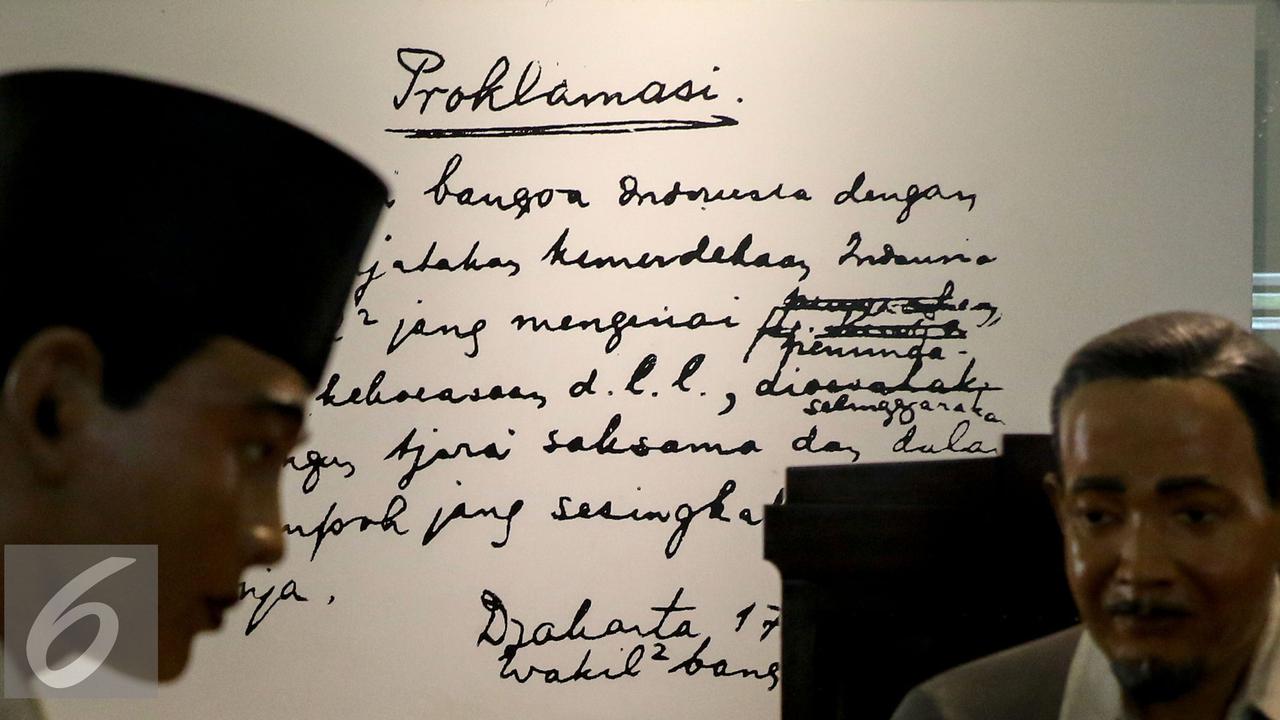 Proklamasi.
bangsa Indonesia dengan
jatakan kemerdekaan Indonesia
2 jang mengenai
peminda-
kekoeasaan d.l.l., dioesahakan
tjara saksama dan dala
jang sesingka
nja.
Djakarta, 17
Wakil2 bang
6